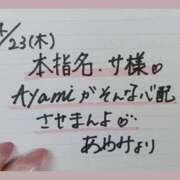 /23(木)
本指名.サ様♡
Ayamiがそんな心配
させまんよ
あやみより